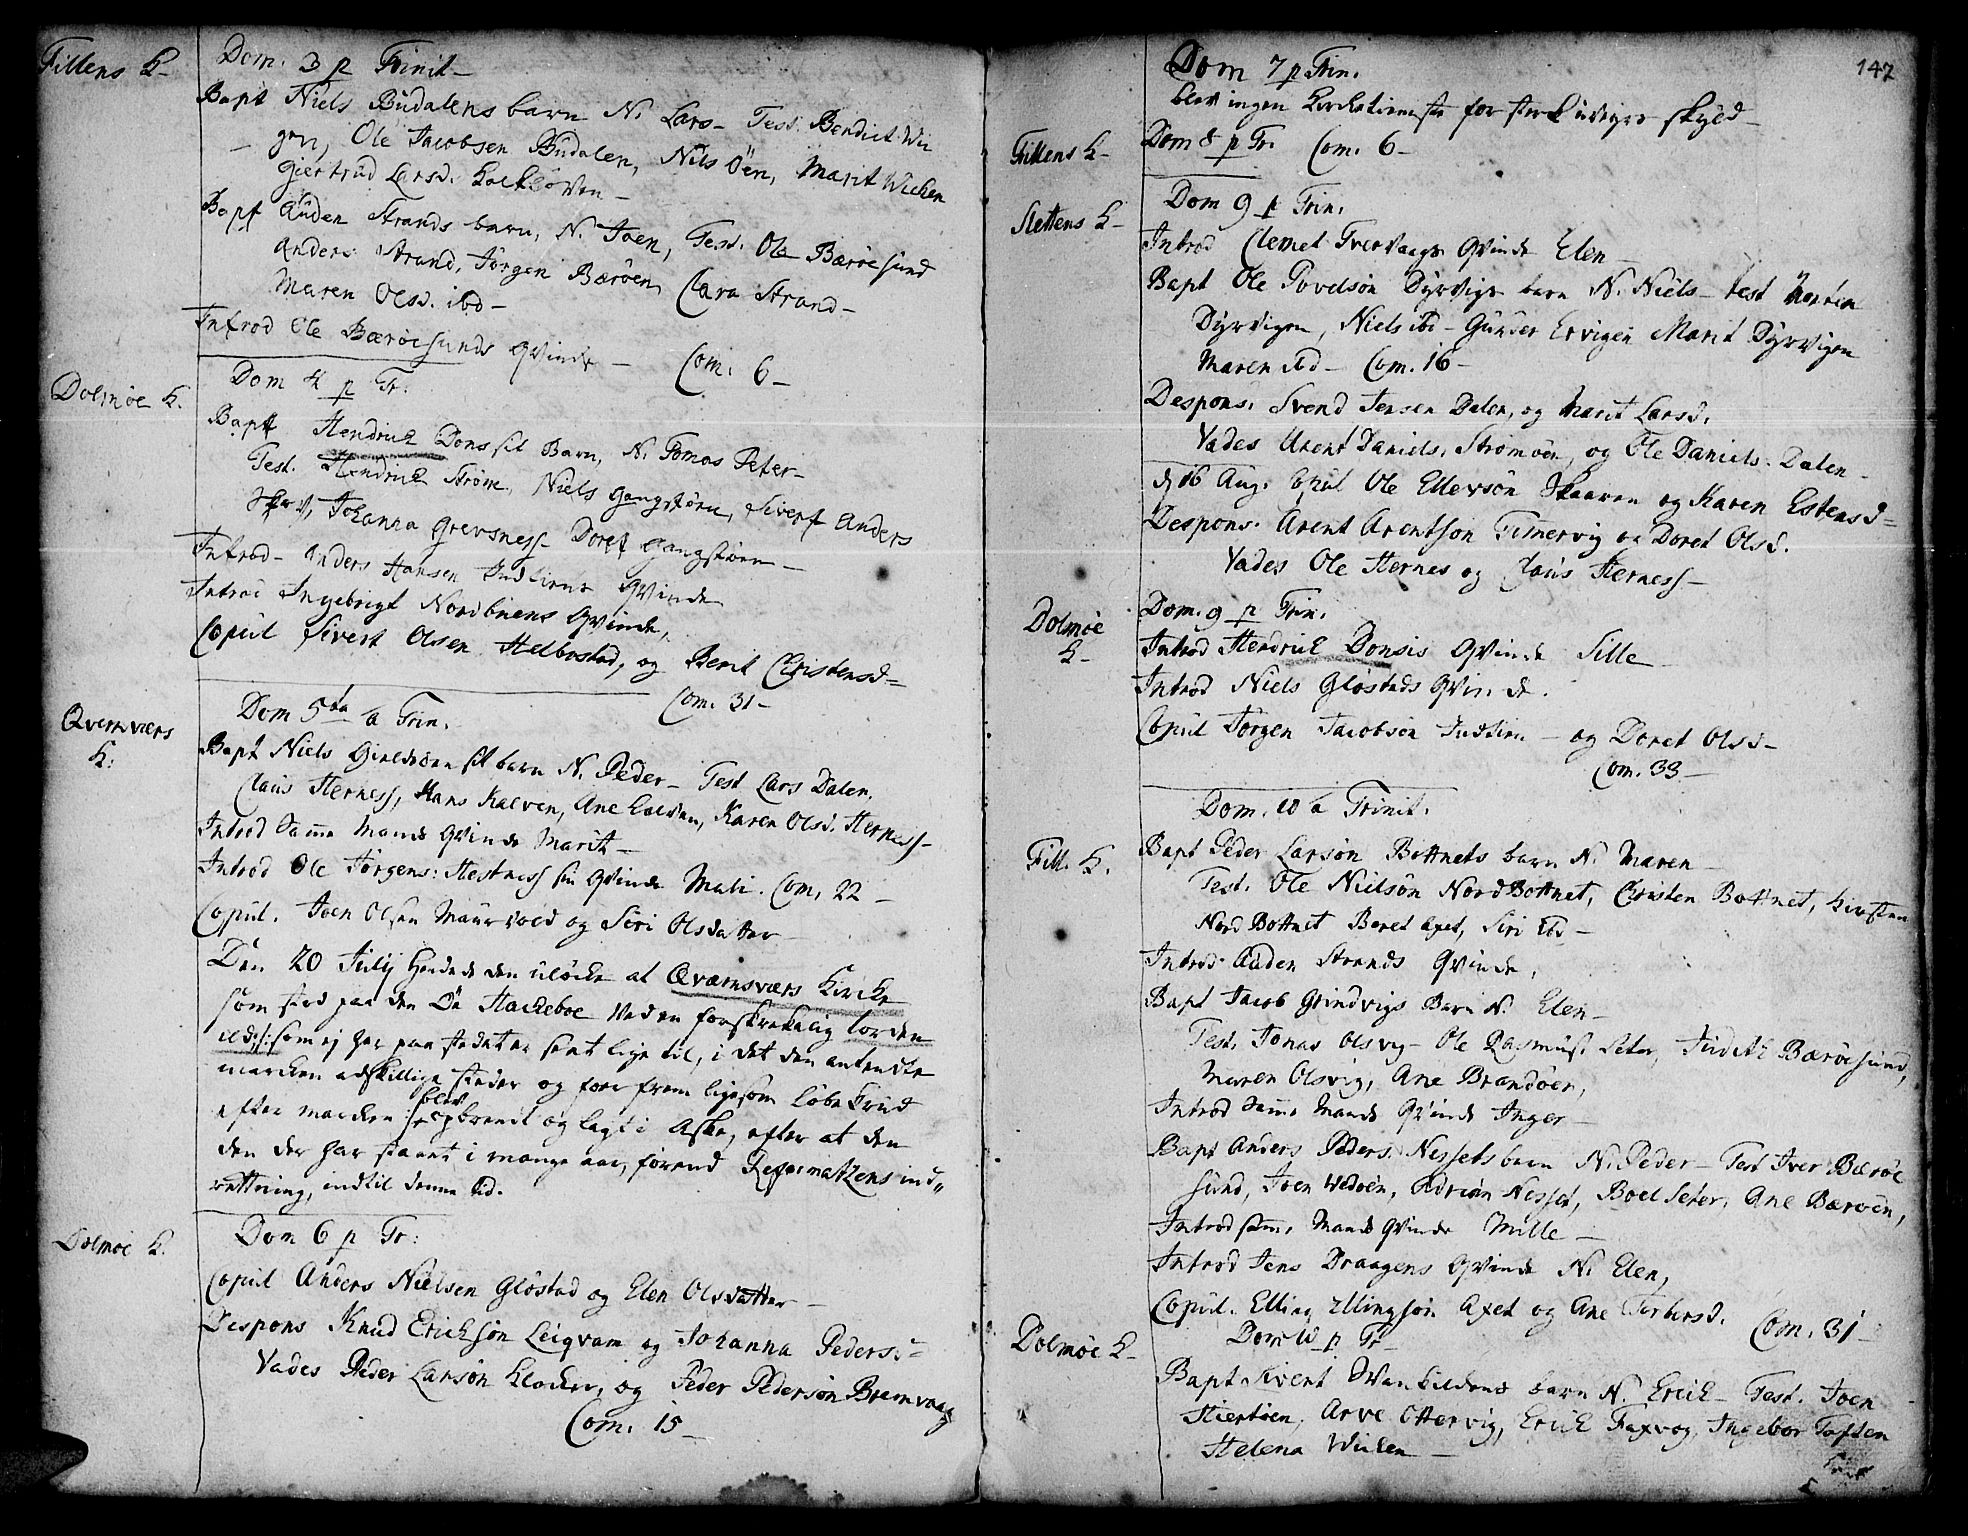 Fillens K-
Dom. 3 p Trinit-
Bapt Niels Budalens barn N. Lars- Test. Bendict Wi
gen, Ole Jacobsen Budalen, Nils Öen, Marit Wichen
Giertrud Larsd.
Bapt Auden Strands barn, N. Joen, Test. Ole Bærøesund
Anders Strand, Jørgen Bærøen, Clara Strand-
Maren Olsd. ibd-
Introd Ole Bærøesunds Qvinde - Com. 6-
Dolmøe K.
Dom 4 p Tr:
Bapt Hendrich Dons sit Barn, N. Tomas Peter-
Test. Hendrich Strøm, Niels Gangstøen, Sivert Anders
Johanna Grevsness Doret Gangstøen-
Introd- Anders Hansen Qvinde
Introd Ingebrigt Nordbuens Qvinde,
Copul Sivert Olsen Helbostad, og Berit Christensd=
Com. 31-
Qvernværs
K:
Dom 5ta a Trin.
Bapt Niels sit barn N. Peder- Test Lars Dalen,
Claus Herness, Hans Kalven, Ane Karen Olsd. Herness-
Introd Samme Mands Qvinde Marit-
Introd Ole Jørgens: Hestness sin Qvinde Mali. Com. 22-
Copul. Joen Olsen Maurvold og Siri Olsdatter
Den 20 Julij hendede den ulöcke at Qværnsværs Kircke
som stod paa den Öe Hackeboe ved en forskrekelig torden
ild /: som ej har paa stedet er skeet lige til, i det den antendte
marcken adskillige steder og foer frem ligesom løbe Krud
efter marcken :/ blev opbrendt og lagt i Aske, efter at den
den der har staaet i mange aar, førend Reformatzens ind„
rettning, indtil denne tid.
Dolmøe K.
Dom 6 p Tr:
Copul Anders Nielsen Gløstad og Elen Olsdatter-
Despons Knud Erichsøn Leiqvam og Johanna Pedersd=
Vades Peder Larsøn Klocker, og Peder Pedersøn Bremvaag
Com. 15-
147
Dom 7 p Trin.
blev ingen Kircketieneste for sterk uveyrs skyld-
Fillens K-
Dom 8 p Tr. Com. 6-
Slettens K-
Dom 9 p Trin.
Introd Clemet Tvervaags Qvinde Elen-
Bapt Ole Povelsøn Dyrvigs barn N. Niels- test Morten
Dyrvigen, Niels ibd- Gunder Ervigen Marit Dyrvigen
Maren ibd- Com. 16-
Despons. Svend Jensen Dalen, og Marit Larsd.
Vades Arent Daniels. Strømøen, og Ole Daniels. Dalen-
d 16 Aug. Copul Ole Ellevsøn Skaaren og Karen Estensd=
Despons. Arent Arentson Timervig og Doret Olsd.
Vades Ole Hernes og Claus Herness-
Dolmøe
K-
Dom. 9 p Trin.
Introd Hendrich Donsis Qvinde Sille
Introd Niels Gløstads Qvinde.
Copul Jørgen Jacobsøn - og Doret Olsd-
Com. 33-
Dom. 10 a Trinit.
Fill. K.
Bapt Peder Larsøn Bottnets barn N. Maren-
Test. Ole Nielsøn NordBottnet, Christen Bottnet, Kirsten
NordBottnet Beret Axet, Siri Ibd-
Introd. Auden Strands Qvinde,
Bapt Jacob Grindvigs Barn N. Elen-
Test. Jonas Olsvig- Ole Rasmus: Seter, Judith Bærøesund,
Maren Olsvig, Ane Brandøen,
Introd Samme Mands Qvinde Inger-
Bapt Anders Peders. Nessets barn N. Peder- Test Iver Bærøe
sund, Joen Wedøen, Adrian Nesset, Boel Seter, Ane Bærøen,
Introd samme Mands Qvinde Mille-
Introd Jens Draagens Qvinde N. Elen,
Copul. Elling Ellingsøn Axet og Ane Torbersd. Com. 31-
Dolmøe K-
Dom 10 p Tr-
Bapt Sivert barn N. Erich- Test. Joen
Hiertøen, Arve Ottervig, Erich Faxvog, Ingebor Toften
Helena Wichen-